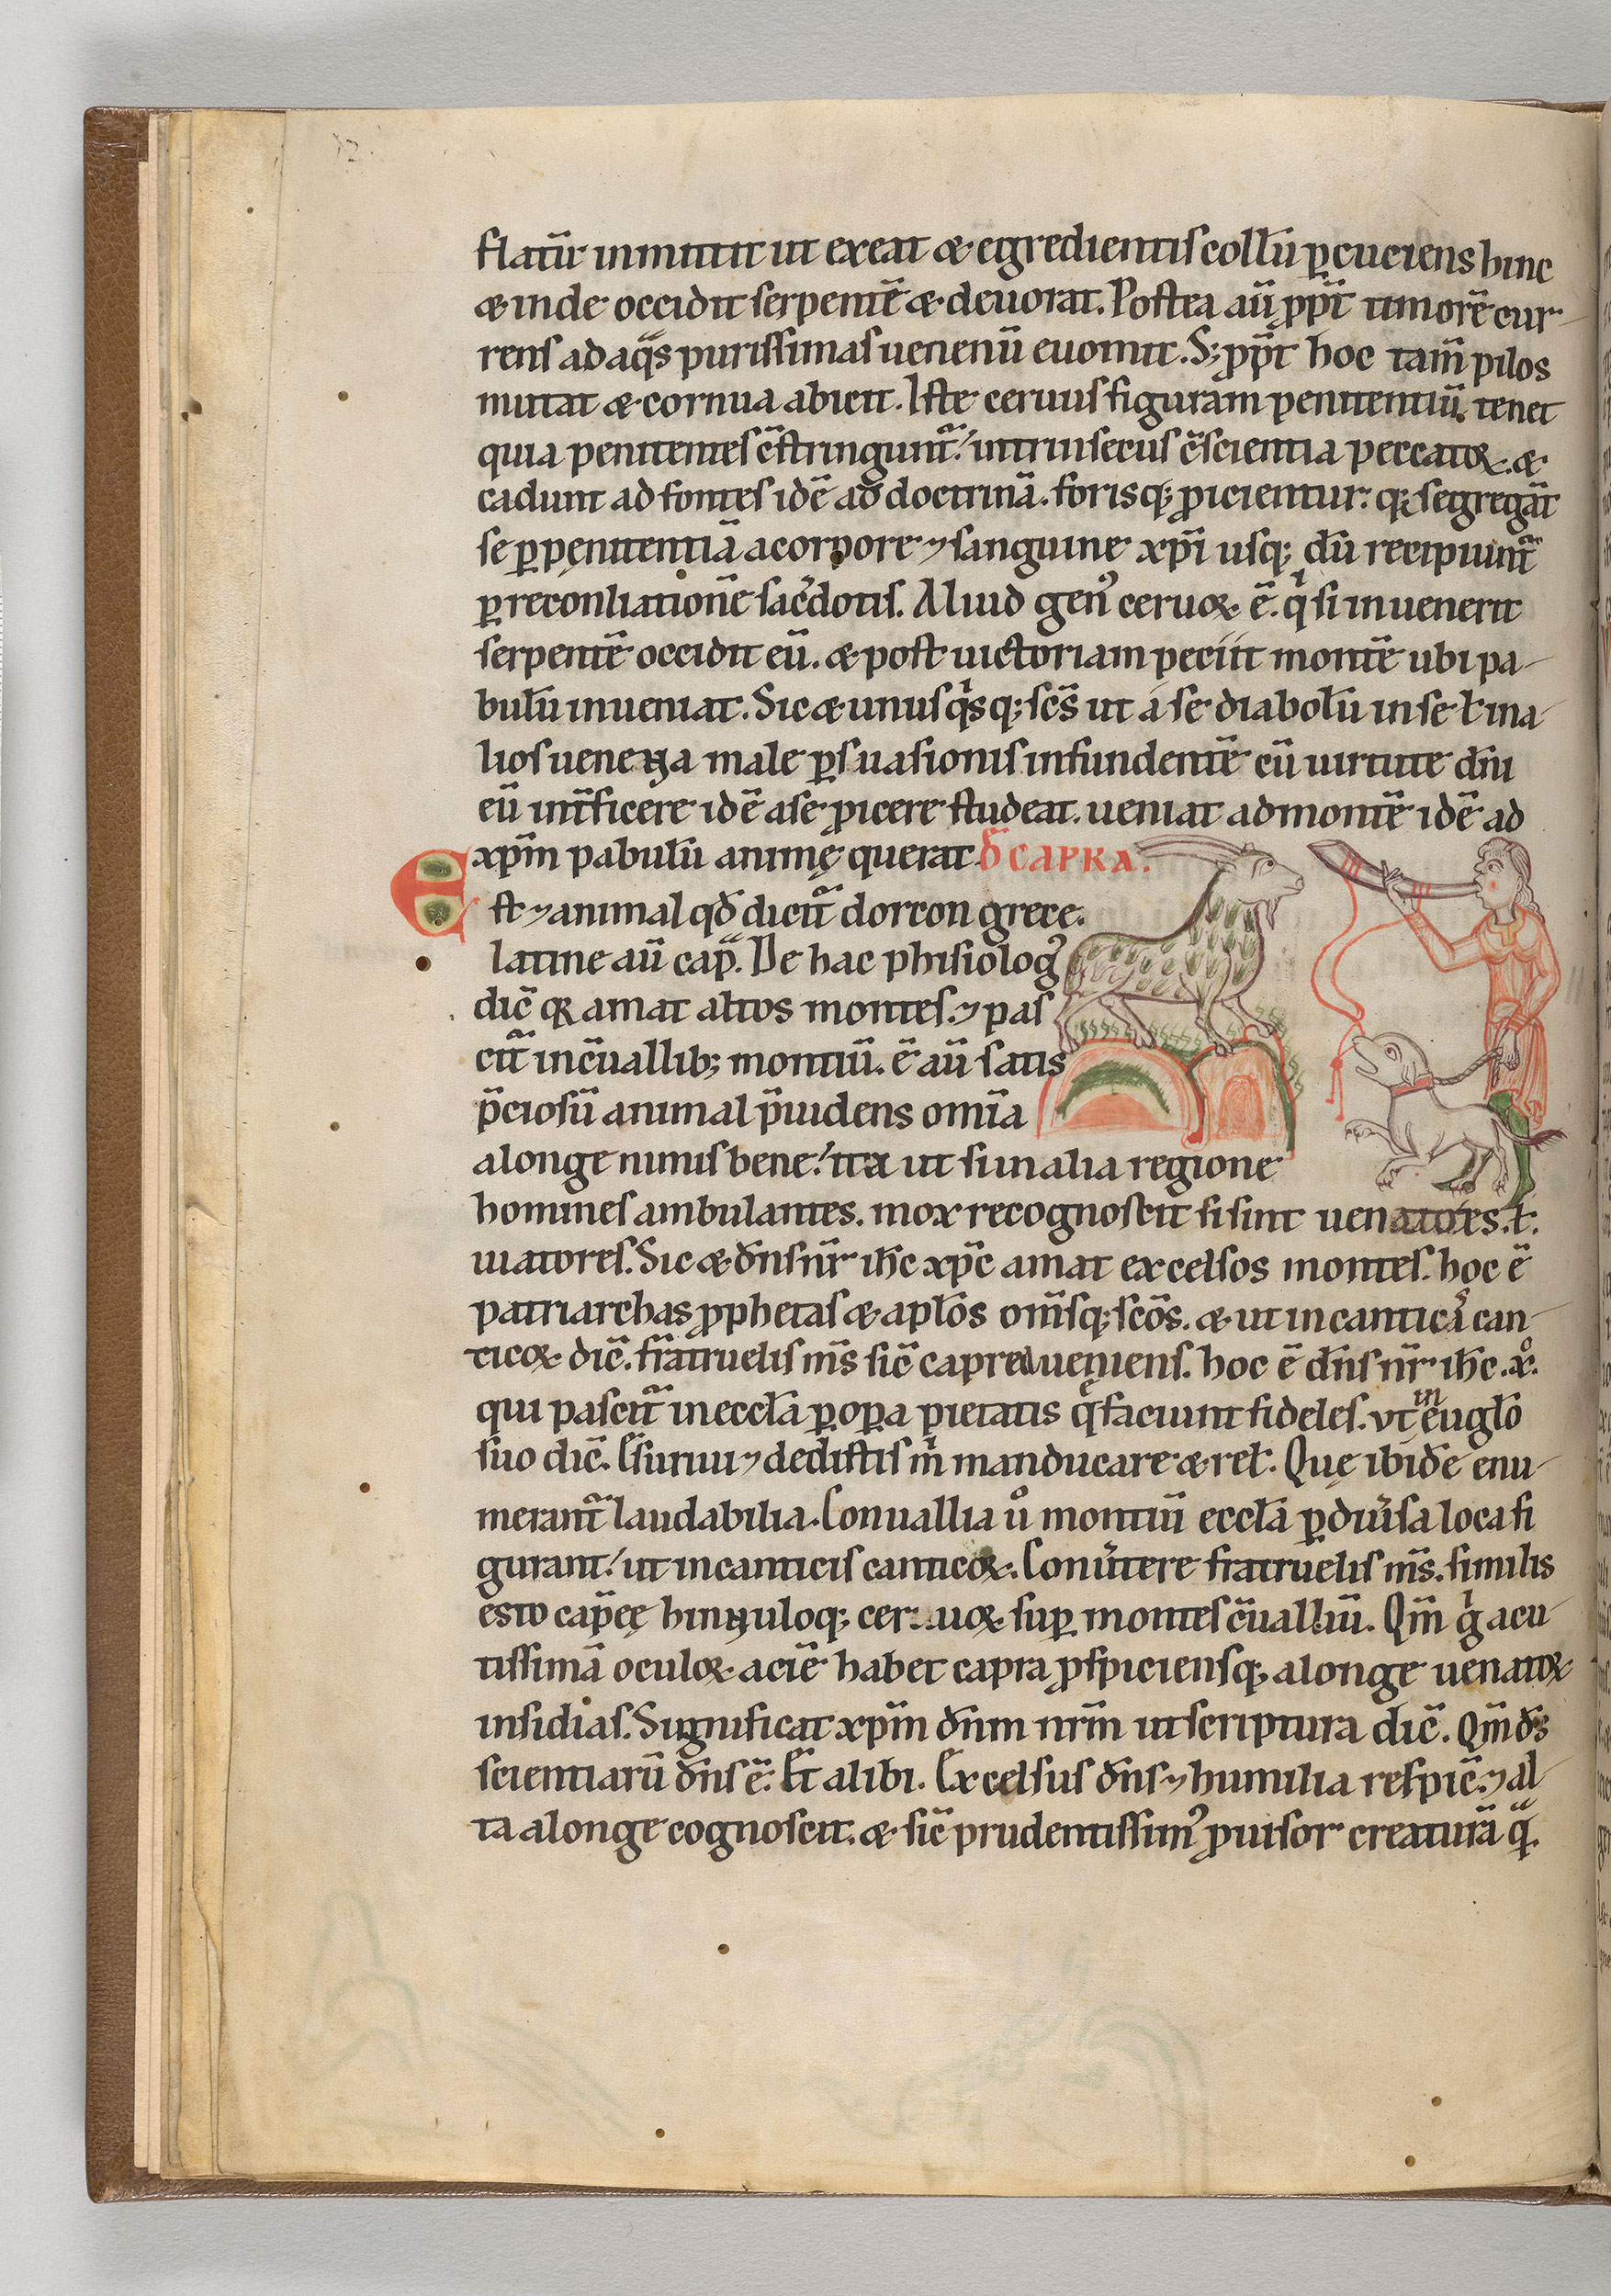 flatū inmittit ut exeat & egredientis collū ꝑcuciens hinc
& inde occidit serpentē & deuorat. Postea aū ꝓpt̄ timorē cur
rens ad aqᵃs purissimas uenenū euomit. S; ꝓpt̄ hoc tam̄ pilos
mutat & cornua abicit. Iste ceruus figuram penitentiū tenet
quia penitentes c̄stringunt᷑ intrinsecus c̄scientia peccatoꝝ. &
cadunt ad fontes idē ad doctrinā. forisq; ꝓicientur: qꝛ segregāt
se ꝑ pęnitentiā a corpore ⁊ sanguine xp̄i usq; dū recipiunt᷑
ꝑ reconliationē sac̄dotis. Aliud genꝰ ceruoꝝ ē. qⁱ si inuenerit
serpentē occidit eū. & post uictoriam peciit montē ubi pa
bulū inueniat. Sic & unusqⁱsq; sc̄s ut a se diabolū in se ł in a
lios uenena male ꝑsuasionis infundentē cū uirtute dn̄i
eū int̄ficere idē a se ꝓicere studeat. ueniat ad montē idē ad
xp̄m pabulū animę querat. D̄ CAPRA.
Est ⁊ animal qđ dicit᷑ dorcon grece.
latine aū capᵃ. De hac phisiologꝰ
dic̄ qꝛ amat altos montes. ⁊ pas
cit᷑ in c̄uallib; montiū. ē aū satis
p̄ciosū animal p̄uidens om̄ia
a longe nimis bene. ita ut si in alia regione
homines ambulantes. mox recognoscit si sint uenatores. ł.
uiatores. Sic & dn̄s nr̄ ih̄c xp̄c amat excelsos montes. hoc ē
patriarchas ꝓphetas & apl̄os om̄sq; sc̄os. & ut in canticꝭ can
ticoꝝ dic̄. fratruelis m̄s sic̄ caprea ueniens. hoc ē dn̄s nr̄ ih̄c. xᵒ.
qui pascit᷑ in eccl̄a ꝑ oꝑa pietatis qᵉ faciunt fideles. vt in euglō
suo dic̄. Esuriui ⁊ dedistis mⁱ manducare & rel̄. Quę ibidē enu
merant᷑ laudabilia. Conuallia uᵒ montiū eccl̄a ꝑ diuīsa loca fi
gurant. ut in canticis canticoꝝ. Conūtere fratruelis m̄s. similis
esto cap̄eę hinnuloq; ceruoꝝ suꝑ montes c̄ualliū. Qm̄ gⁱ acu
tissimā oculoꝝ aciē habet capra ꝓspiciensq; a longe uenatoꝝ
insidias. Significat xp̄m dn̄m nr̄m ut scriptura dic̄. Qm̄ ds̄
scientiarū dn̄s ē. Et alibi. Excelsus dn̄s ⁊ humilia respic̄. ⁊ al
ta a longe cognoscit. & sic̄ prudentissimꝰ ꝓuisor creaturā qᵃ.